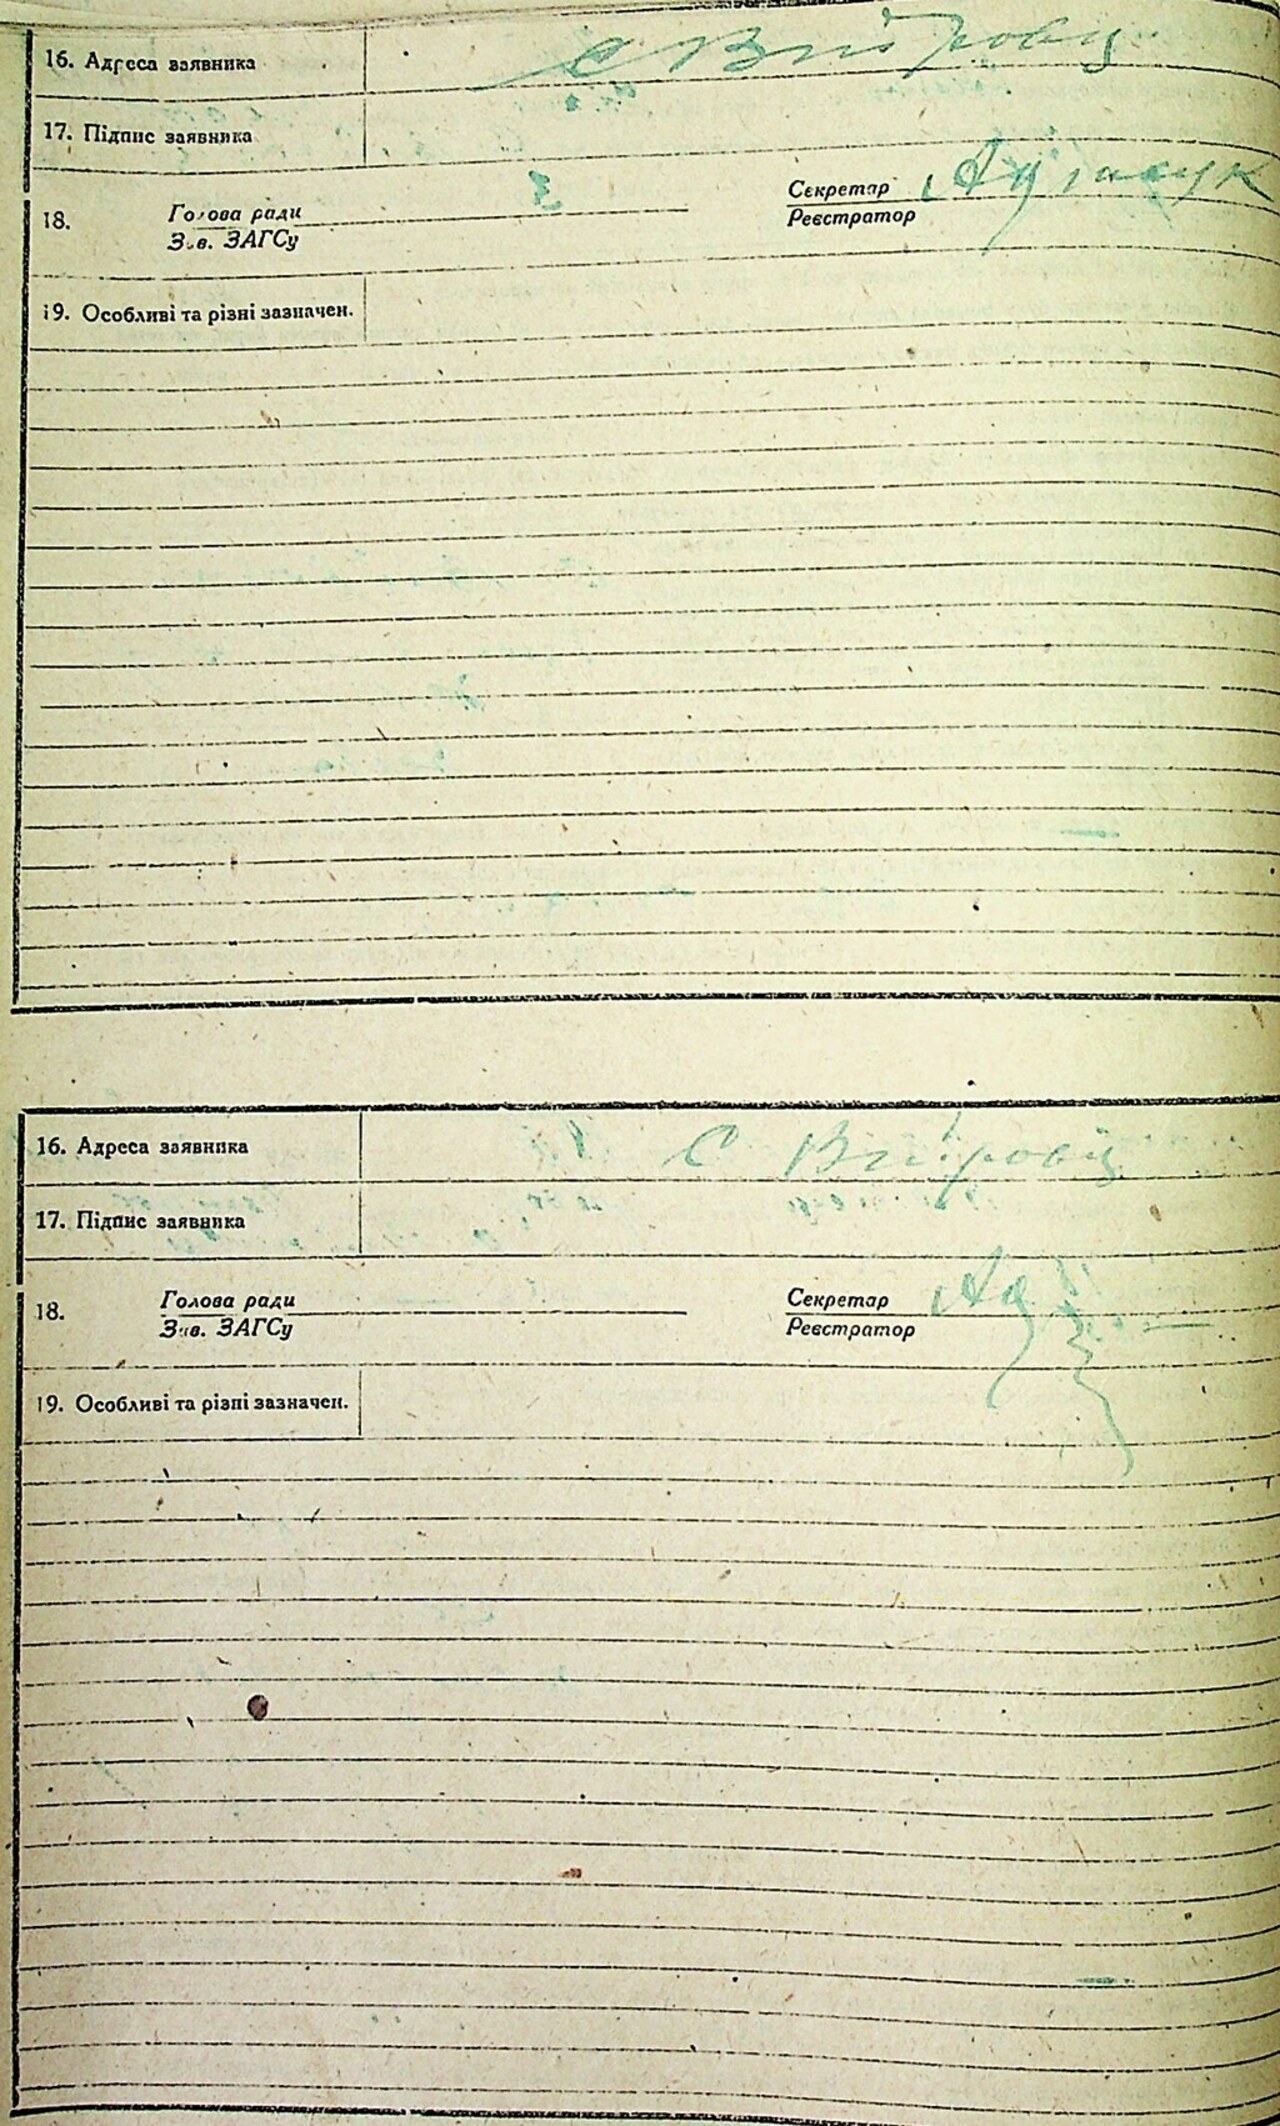 16. Адреса заявника с Вітровці
17. Підпис заявника
18. Голова ради Секретар
Зав. ЗАГСу Реєстратор
19. Особливі та різні зазначен.
16. Адреса заявника с
17. Підпис заявника
18. Голова ради Секретар
Зав. ЗАГСу Реєстратор
19. Особливі та різні зазначен.